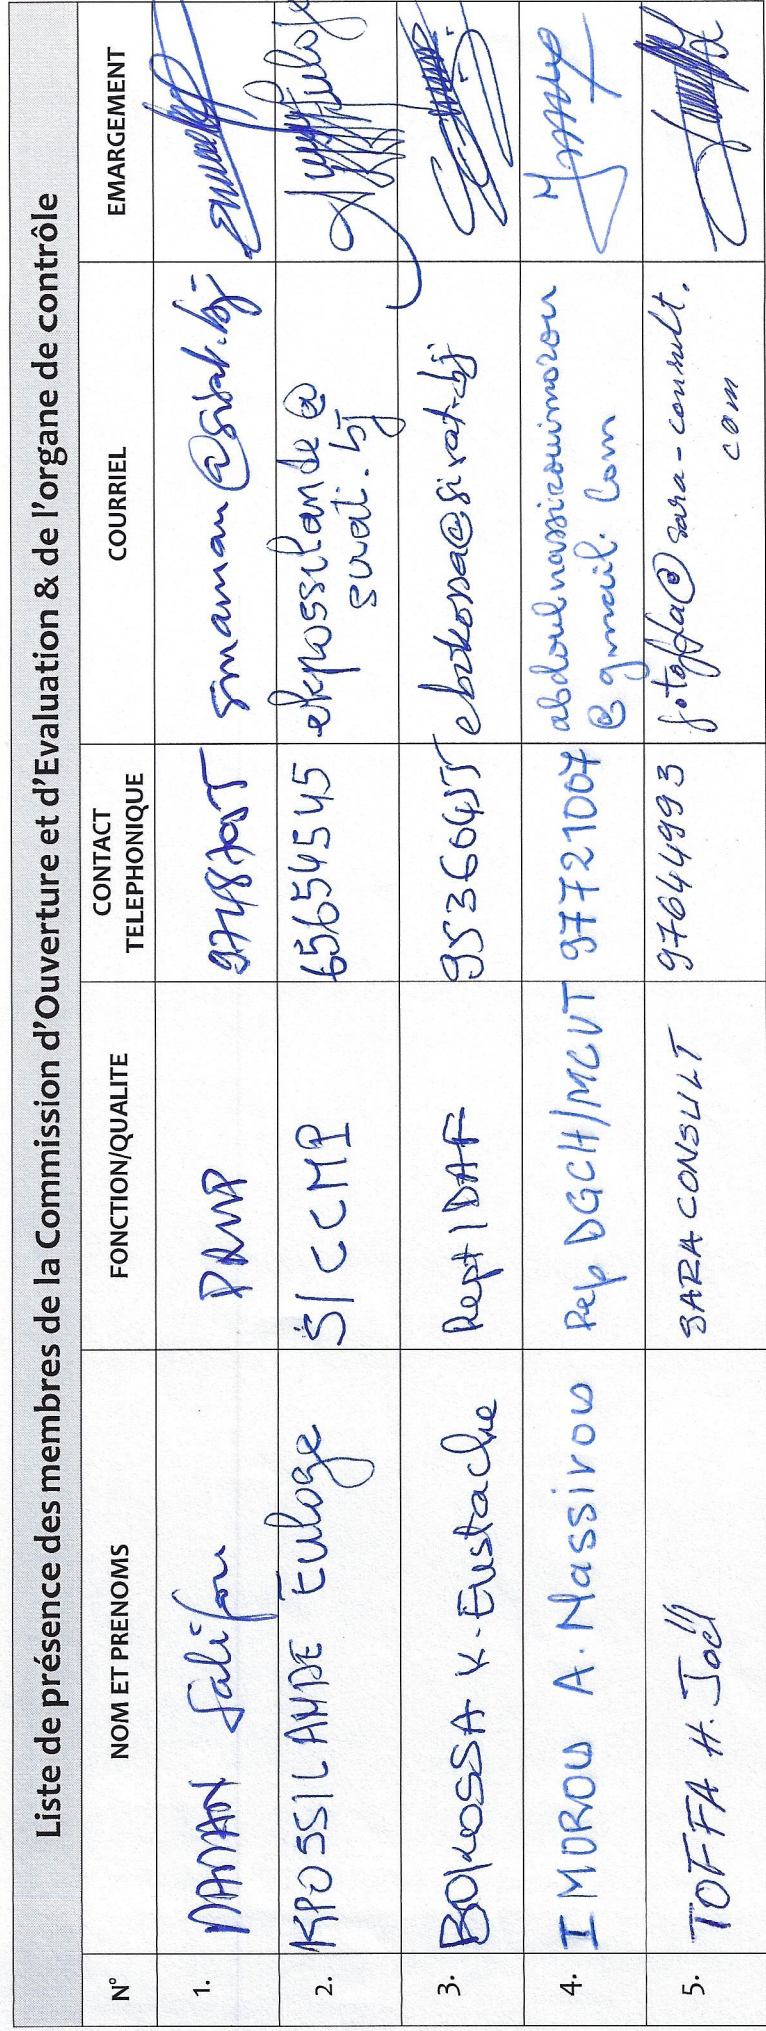 Liste de présence des membres de la Commission d'Ouverture et d'Evaluation & de l'organe de contrôle
N° NOM ET PRENOMS FONCTION/QUALITE CONTACT TELEPHONIQUE COURRIEL EMARGEMENT
1. MAMAN Salifou PRMP smaman@sirat.bj
2. KPOSSILANDE Euloge S/CCMP 65654545 ekpossilande@
sirat.bj
3. BOKOSSA K. Eustache Rept/DAF 95360455 ebokossa@sirat.bj
4. IMOROU A. Nassirou Rep DGCH/MCVT 97721007 abdoulnassirouimorou
@gmail.com
5. TOFFA H. Joël SARA CONSULT 97644993 jotoffa@sara-consult.
com